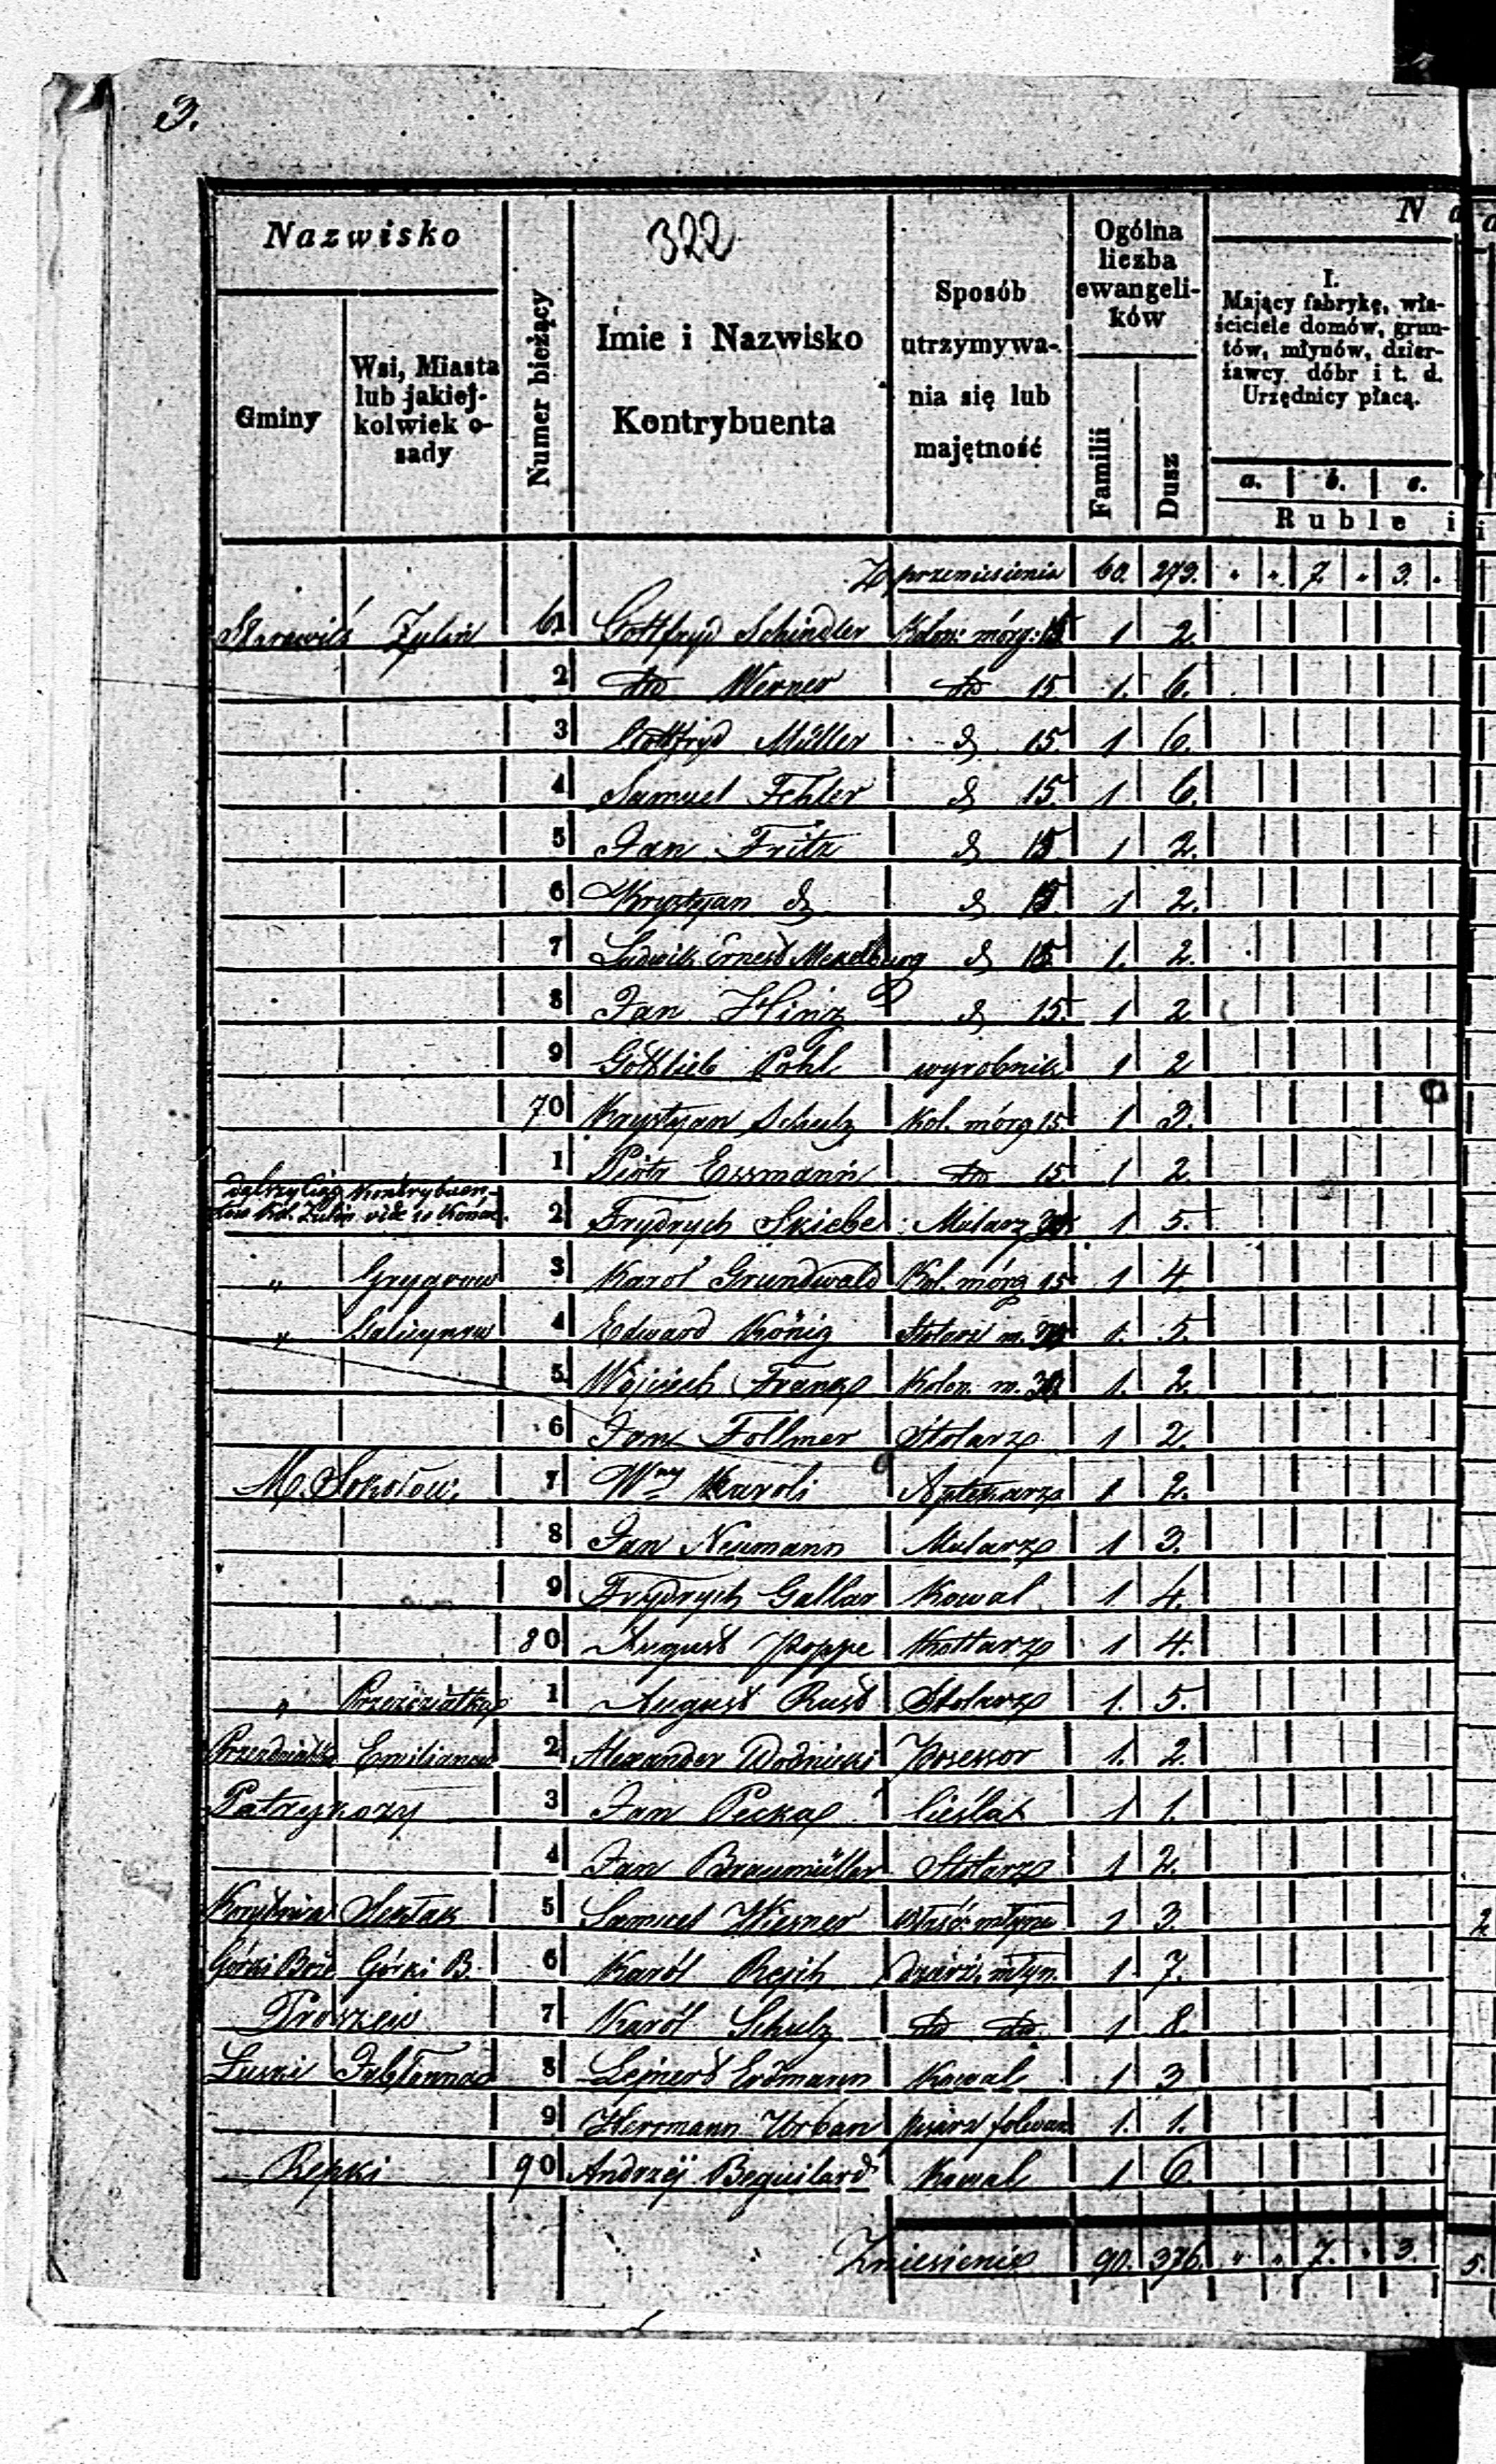 3.
Nazwisko
322
Gminy
Wsi, Miasta
lub jakiej-
kolwiek o-
sady
Numer bieżący
Imie i Nazwisko
Kontrybuenta
Sposób
utrzymywa-
nia się lub
majętność
Ogólna
liczba
ewangeli-
ków
Familii
Dusz
N a
I.
Mający fabrykę, wła-
ściciele domów, grun-
tów, młynów, dzier-
żawcy dóbr i t. d.
Urzędnicy płacą.
a. b. c.
Ruble i
Z przeniesienia 60. 273. " " 7. " 3. "
Żulin 61 Gottfryd Schindler Kolon: mórg: 15 1 2.
2 dto Werner dto 15 1. 6.
3 Gottfryd Müller d 15 1 6.
4 Samuel Fehler d 15. 1 6.
5 Jan Fritz d 15 1 2.
6 Krystyan d d 15. 1 2.
7 Ludwik Ernest Mekelburg d 15. 1. 2.
8 Jan Hinz d 15. 1 2
9 Gottlieb Pohl wyrobnik 1 2
70 Krystyan Schulz Kol. mórg 15. 1 3.
1 Piotr Essmann dto 15. 1 2.
dalszy Ciąg Kontrybuen-
tów Kol. Żulin vide w Końcu.
2 Frydrych Skiebe Mularz 1 5.
" Grygrow 3 Karol Grundwald Kol. mórg 15 1 4
" 4 Edward König Stolarz m. 1. 5.
5. Wojciech Frank Kolon. m. 1. 2.
6 Jan Follmer Stolarz 1 2.
M. Sokołow. 7 Wny Karoli Aptekarz 1 2.
8 Jan Neumann Mularz 1 3.
9 Frydrych Gallar Kowal 1 4.
80 August Poppe Kotlarz 1 4.
" Przeździatka 1 August Rust Stolarz 1. 5.
Przeździatka Emilianow 2 Alexander Wodnicki Posessor 1. 2.
Patrykozy 3 Jan Pecka Cieśla 1 1.
4 Jan Braumüller Stolarz 1 2.
5 Samuel Wiesner właśc: młyna 1 3.
Górki Górki B. 6 Karól Rejch dzierż. młyn. 1 7.
Proszew 7 Karól Schulz dto dto 1 8.
Jabłonna 8 Lejnert Erdmann Kowal 1 3
9 Herrmann Urban pisarz folwar 1. 1.
Repki 90 Andrzéj Beguilard Kowal 1 6.
Zniesienie 90. 376. " " 7. " 3.
2
5.